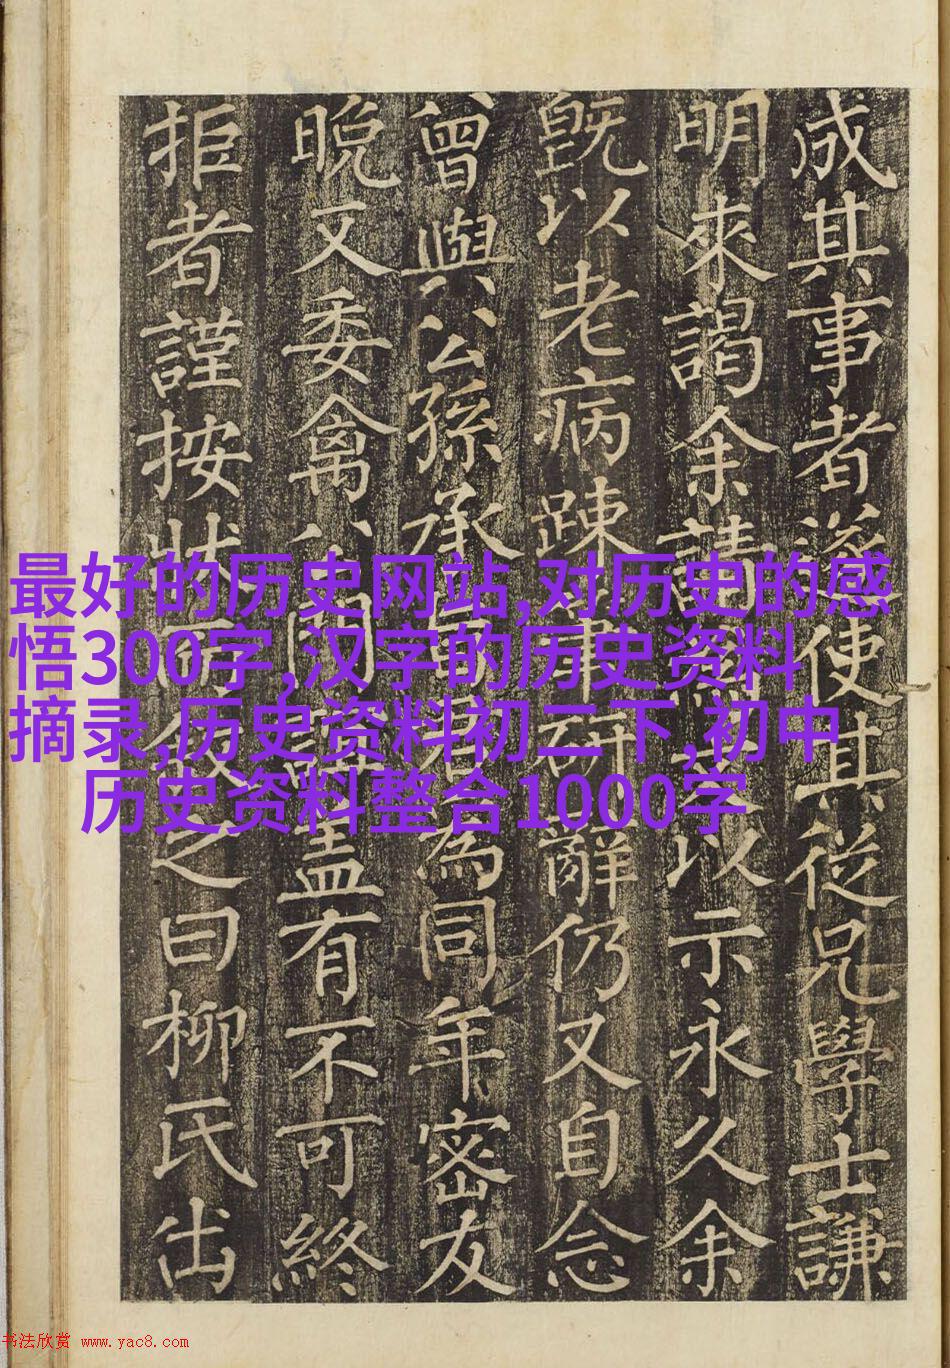 成其事者遂使其從兄學士謙
明來謁余請以示永久余
既以老病踈研辭仍又自念
曾與公孫承為同年密友
晩又委禽公門盖有不可終
拒者謹按狀而叙之曰柳氏出
最好的历史网站,对历史的感
悟300字,汉字的历史资料
摘录,历史资料初二下,初中
历史资料整合1000字
书法欣赏 www.yac8.com